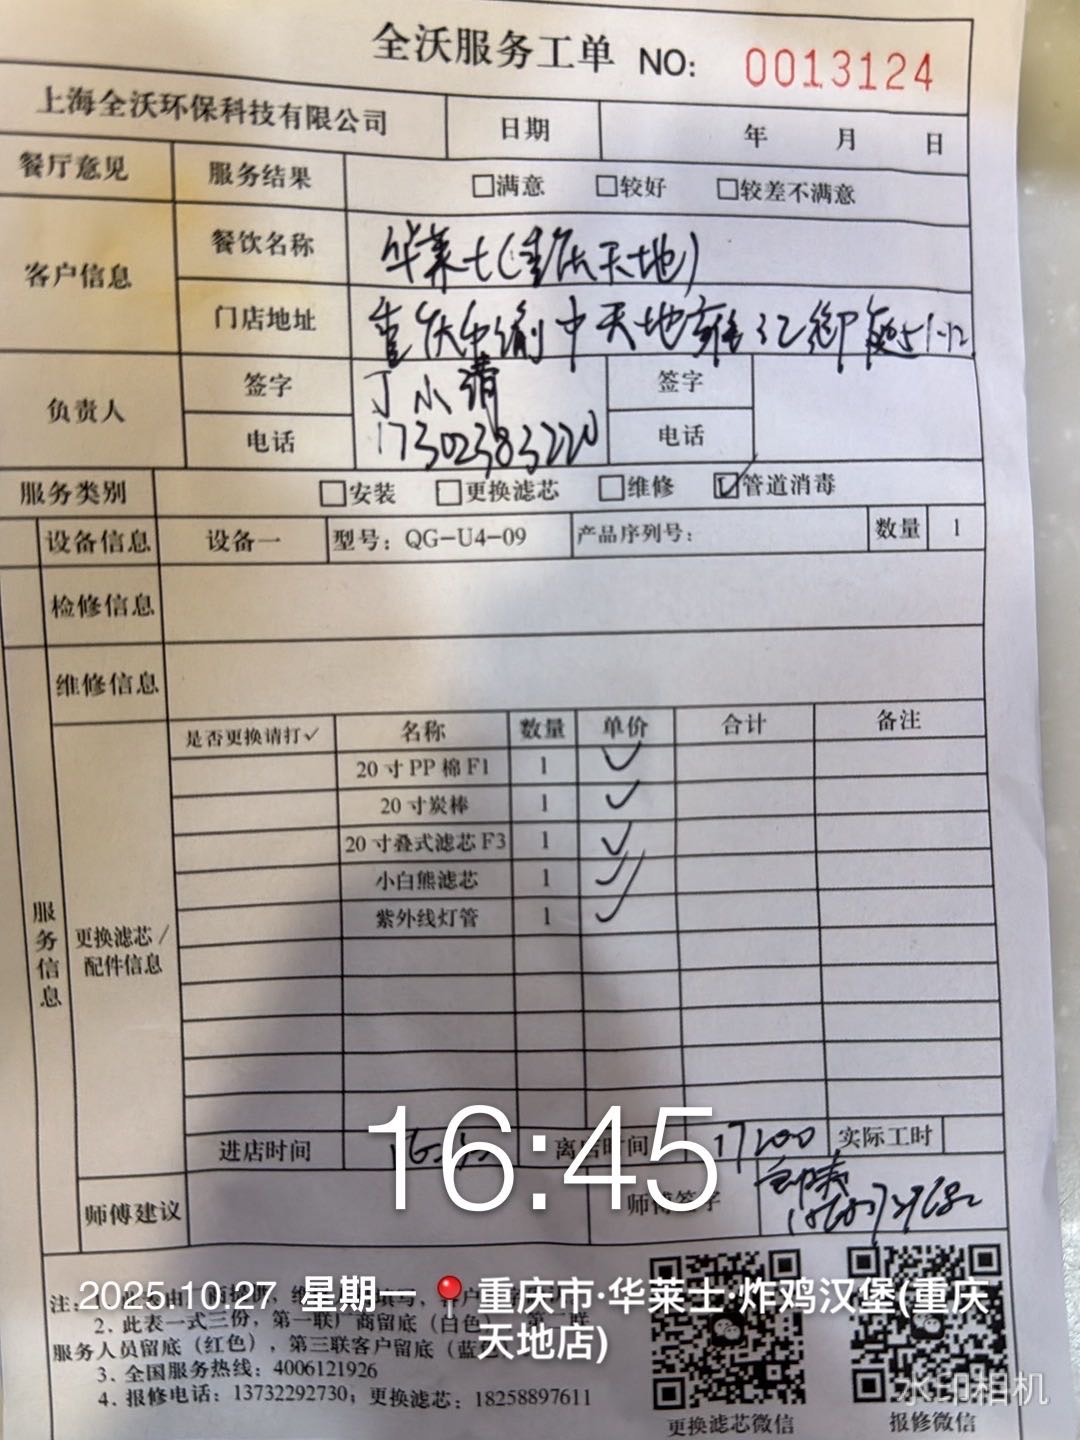 全沃服务工单 NO: 0013124
上海全沃环保科技有限公司 日期 年 月 日
餐厅意见 服务结果 □满意 □较好 □较差不满意
客户信息 餐饮名称 华莱士(重庆天地)
门店地址 重庆市渝中天地雍江御庭51-12
负责人 签字 丁小清 签字
电话 17302383220 电话
服务类别 □安装 □更换滤芯 □维修 ☑管道消毒
设备信息 设备一 型号：QG-U4-09 产品序列号： 数量 1
检修信息
维修信息
服务信息
更换滤芯/配件信息
是否更换请打✓ 名称 数量 单价 合计 备注
20寸PP棉F1 1 ✓
20寸炭棒 1 ✓
20寸叠式滤芯F3 1 ✓
小白熊滤芯 1 ✓
紫外线灯管 1 ✓
进店时间 离店时间 17:00 实际工时
16:45
师傅建议 师傅签字
2025.10.27 星期一 重庆市·华莱士·炸鸡汉堡(重庆天地店)
注：
2. 此表一式三份，第一联厂商留底（白色），第二联
服务人员留底（红色），第三联客户留底（蓝
3. 全国服务热线：4006121926
4. 报修电话：13732292730；更换滤芯：18258897611
更换滤芯微信 报修微信
水印相机